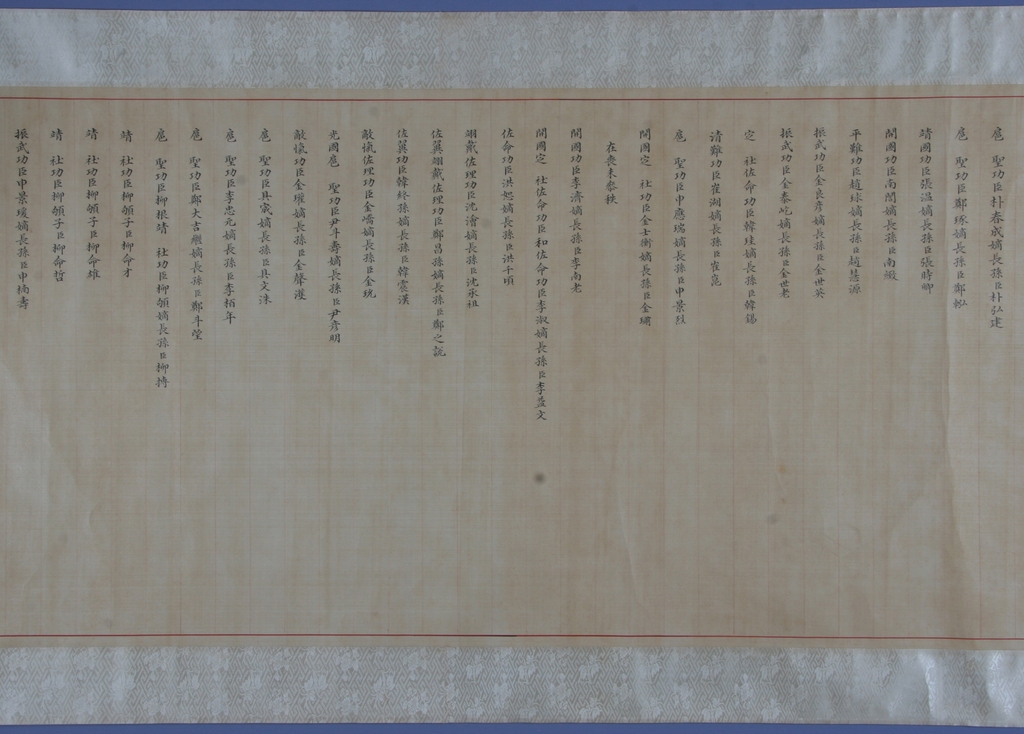 扈 聖功臣朴春成嫡長孫臣朴弘建
扈 聖功臣鄭琢嫡長孫臣鄭
靖國功臣張溫嫡長孫臣張時卿
開國功臣南誾嫡長孫臣南
平難功臣趙球嫡長孫臣趙慧源
振武功臣金良彥嫡長孫臣金世英
振武功臣金泰屹嫡長孫臣金世老
定 社佐命功臣韓珪嫡長孫臣韓錫
清難功臣崔湖嫡長孫臣崔崑
扈 聖功臣申應瑞嫡長孫臣申景烈
開國定 社功臣金士衡嫡長孫臣金𤨒
在喪未黍秩
開國功臣李濟嫡長孫臣李南老
開國定 社佐命功臣和佐命功臣李淑嫡長孫臣李益文
佐命功臣洪恕嫡長孫臣洪千頃
翊戴佐理功臣沈澮嫡長孫臣沈承祖
佐翼翊戴佐理功臣鄭昌孫嫡長孫臣鄭之
佐翼功臣韓終孫嫡長孫臣韓震漢
敵愾佐理功臣金嶠嫡長孫臣金
光國扈 聖功臣尹斗壽嫡長孫臣尹彥明
敵愾功臣金瓘嫡長孫臣金聲濩
扈 聖功臣具宬嫡長孫臣具文洙
扈 聖功臣李忠元嫡長孫臣李栢年
扈 聖功臣鄭大吉嫡長孫臣鄭斗瑩
扈 聖功臣柳根靖 社功臣柳頔嫡長孫臣柳
靖 社功臣柳頔子臣柳命才
靖 社功臣柳頔子臣柳命雄
靖 社功臣柳頔子臣柳命哲
振武功臣申景瑗嫡長孫臣申楠壽